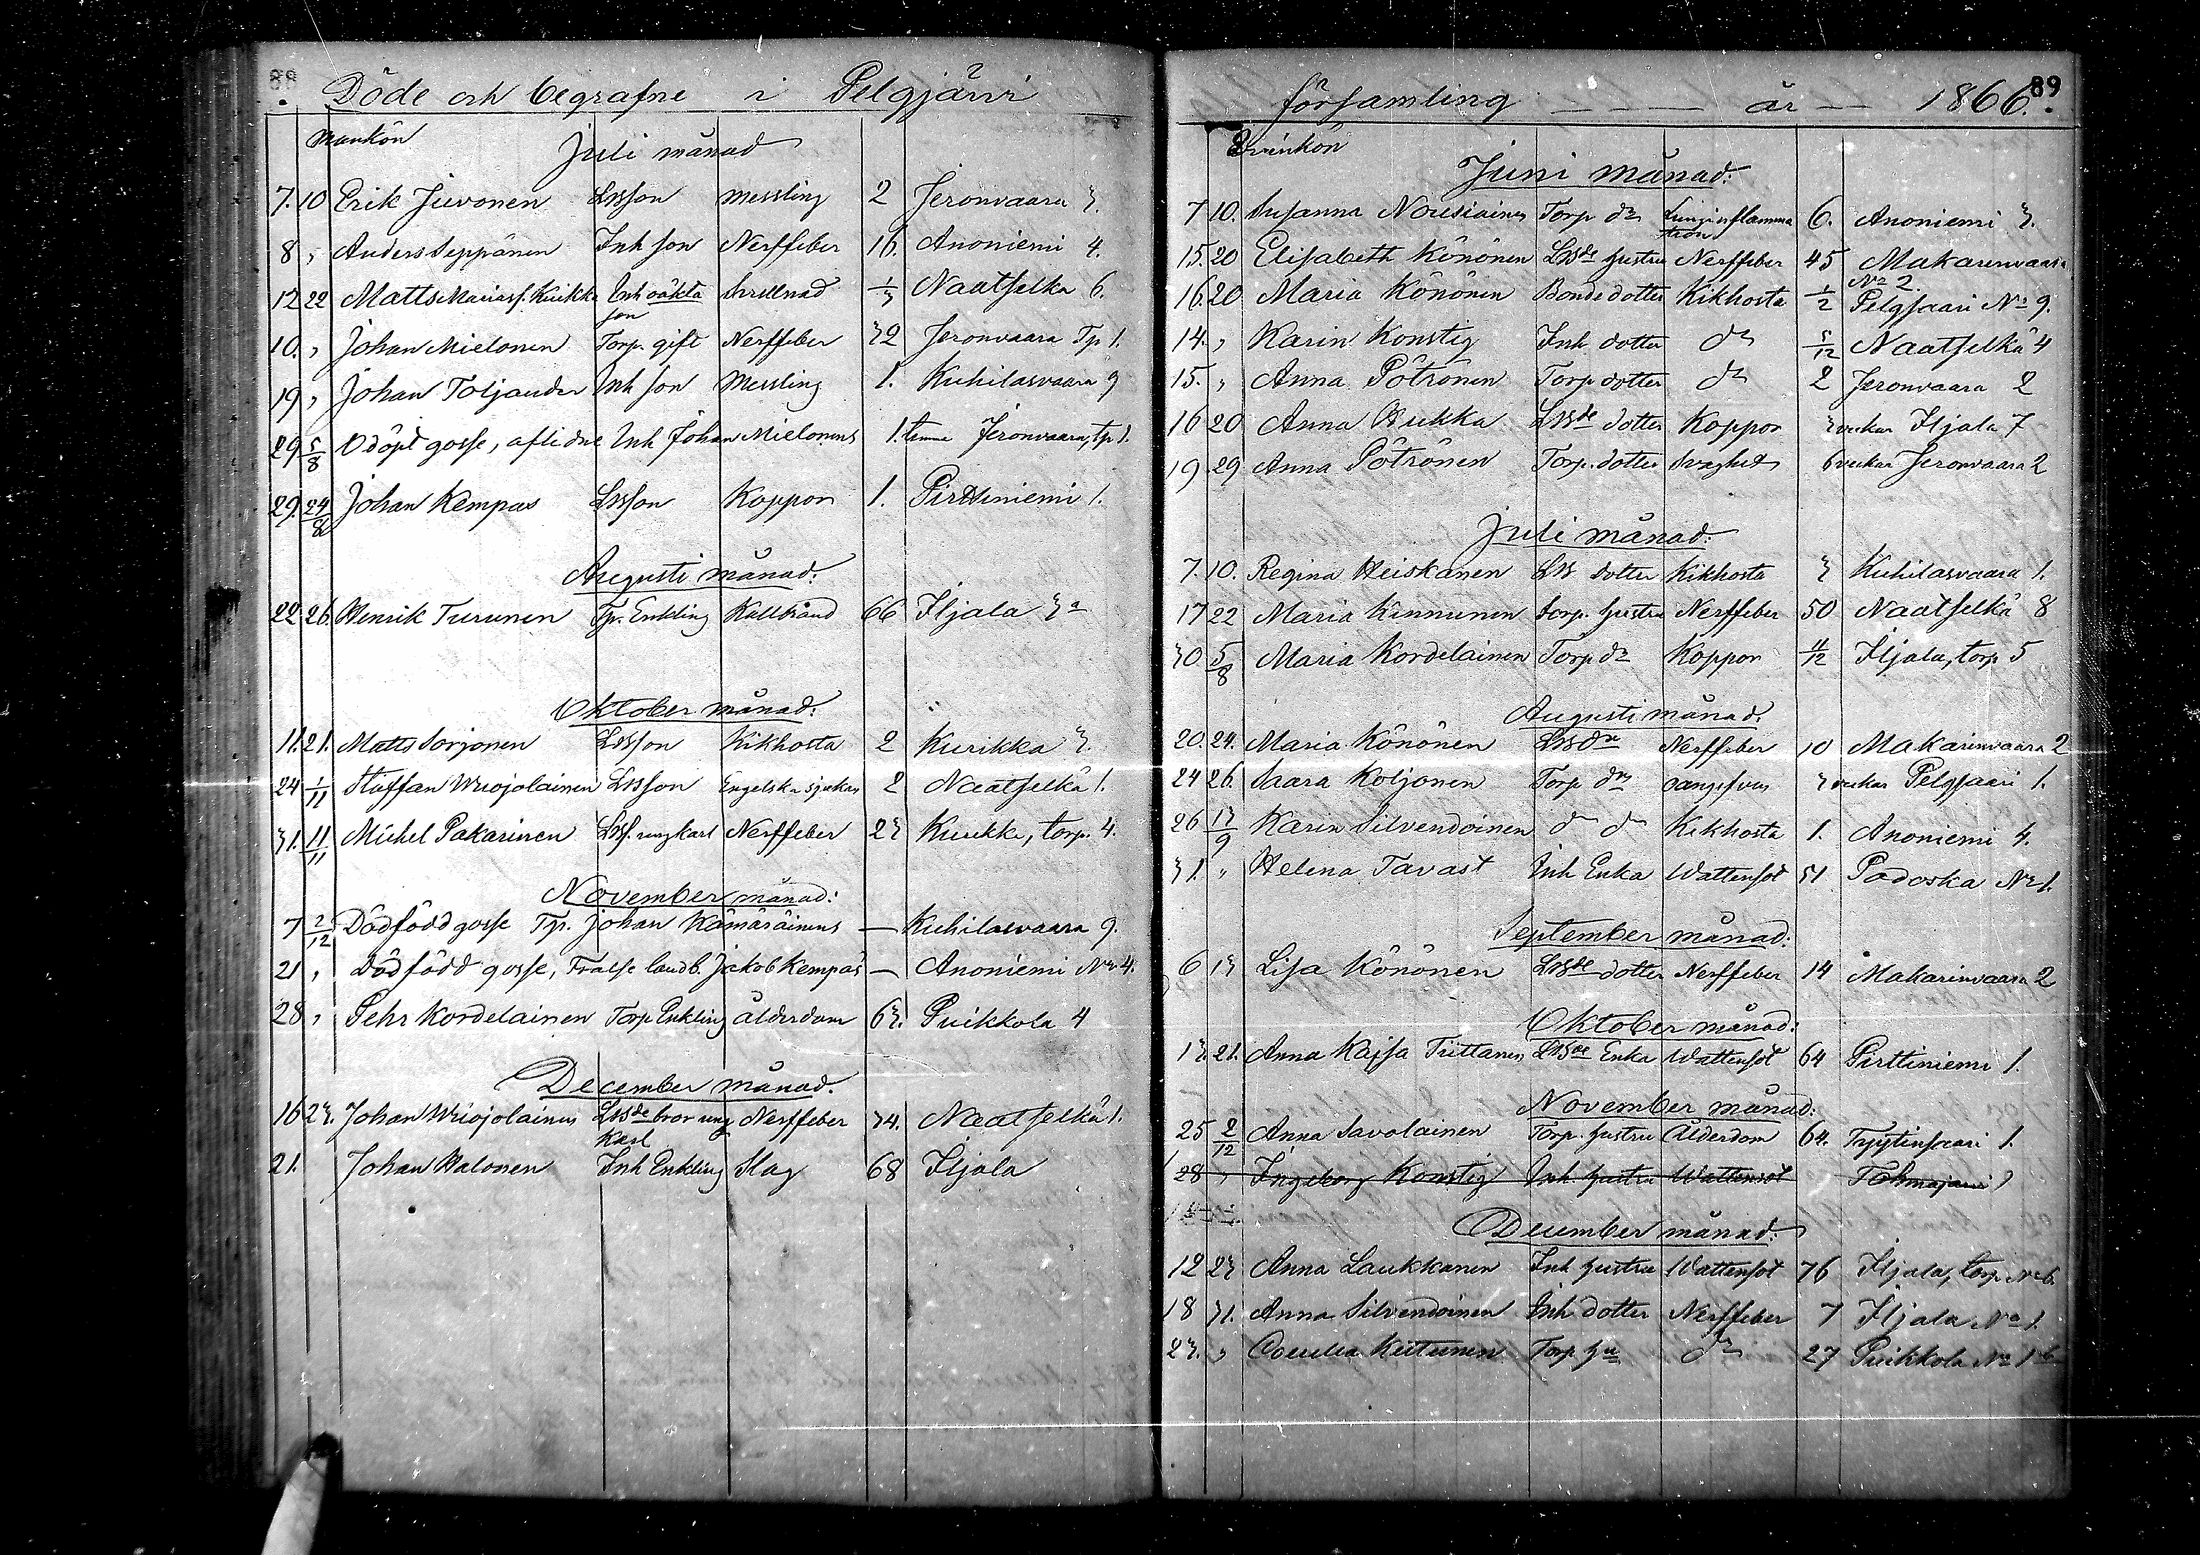 88
Döde och begrafne i Pelgjärvi
mankön
Juli månad
7. 10 Erik Juvonen Lssson Messling 2 Jeronvaara 3.
8 " Anders Seppänen Inh son Nerffeber 16. Anoniemi 4.
12 22 Matts Mariasf. Kuikka Inh oäkta son Naatselkä 6.
10. " Johan Mielonen Torp. gift Nerffeber 32 Jeronvaara Tp 1.
19 " Johan Toljander Inh son Messling 1. Kuhilasvaara 9
29 5/8 Odöpt gosse, aflidne Inh Johan Mielonens 1. timme Jeronvaara, tp 1.
29. 24/8 Johan Kempas Lssson Koppor 1. Pirttiniemi 1.
Augusti månad.
22. 26. Henrik Turunen Tp. Enkling Kallbrand 66 Iljala 3
Oktober månad:
11. 21. Matts Sorjonen Lssson Kikhosta 2 Kurikka 3.
24 1/11 Staffan Wriojolainen Lssson Engelska sjukan 2 Naatselkä 1.
31. 11/11 Mickel Pakarinen Lssf. ungkarl Nerffeber 23 Kurikk, torp. 4.
November månad:
7 2/12 Dödfödd gosse Tp. Johan Kämäräinens — Kuhilasvaara 9.
21 " Dödfödd gosse, Frälse landb. Jakob Kempas — Anoniemi No 4.
28 " Pehr Kordelainen Torp Enkling Ålderdom 63. Puikkola 4
December månad.
16 23. Johan Wriojolainen Lssde bror ung karl Nerffeber 34. Naatselkä 1.
21. Johan Halonen Inh Enkling Slag 68 Iljala
89
församling — — — år — 1866.
Qvinkön
Juni månad:
7 10. Susanna Nousiainen Torp dr Lunginflammation 6. Anoniemi 3.
15. 20 Elisabeth Könönen Lssde hustru Nerffeber 45 Makarinvaara No 2
16. 20 Maria Könönen Bonde dotter Kikhosta 1/2 Pelgjaari No 9.
14. " Karin Konstig Inh dotter do 5/12 Naatselkä 4
15. " Anna Pötrönen Torp dotter do 2 Jeronvaara 2
16 20 Anna Kukka Lssde dotter Koppor 3 veckor Iljala 7
19. 29 Anna Pötrönen Torp. dotter Svaghet 6 veckor Jeronvaara 2
Juli månad:
7. 10. Regina Heiskanen Lss dotter Kikhosta 3 Kuhilasvaara 1.
17 22 Maria Kinnunen Torp. hustru Nerffeber 50 Naatselkä 8
30 5/8 Maria Kordelainen Torp dr Koppor 11/12 Iljala, torp 5
Augusti månad.
20. 24. Maria Könönen Lss dr Nerffeber 10 Makarinvaara 2
24 26. Saara Koljonen Torp dr 3 veckor Pelgjaari 1.
26 17/9 Karin Silvendoinen do dr Kikhosta 1. Anoniemi 4.
31. " Helena Tavast Inh Enka Wattensot 51 Padoska No 1.
September månad:
6 13 Lisa Könönen Lssde dotter Nerffeber 14 Makarinvaara 2
Oktober månad:
13. 21. Anna Kajsa Tiittanen Lssde Enka Wattensot 64 Pirttiniemi 1.
November månad:
25 2/12 Anna Savolainen Torp. hustru Ålderdom 64. Tyytinsaari 1.
28 " Ingeborg Konstig Inh hustru Wattensot Tohmajärvi
December månad:
12 23 Anna Laukkanen Inh hustru Wattensot 76 Iljala, torp No 6.
18 31. Anna Silvendoinen Inh dotter Nerffeber 7 Iljala No 1.
23. " Kiittunen Torp hu do 27 Puikkola No 1